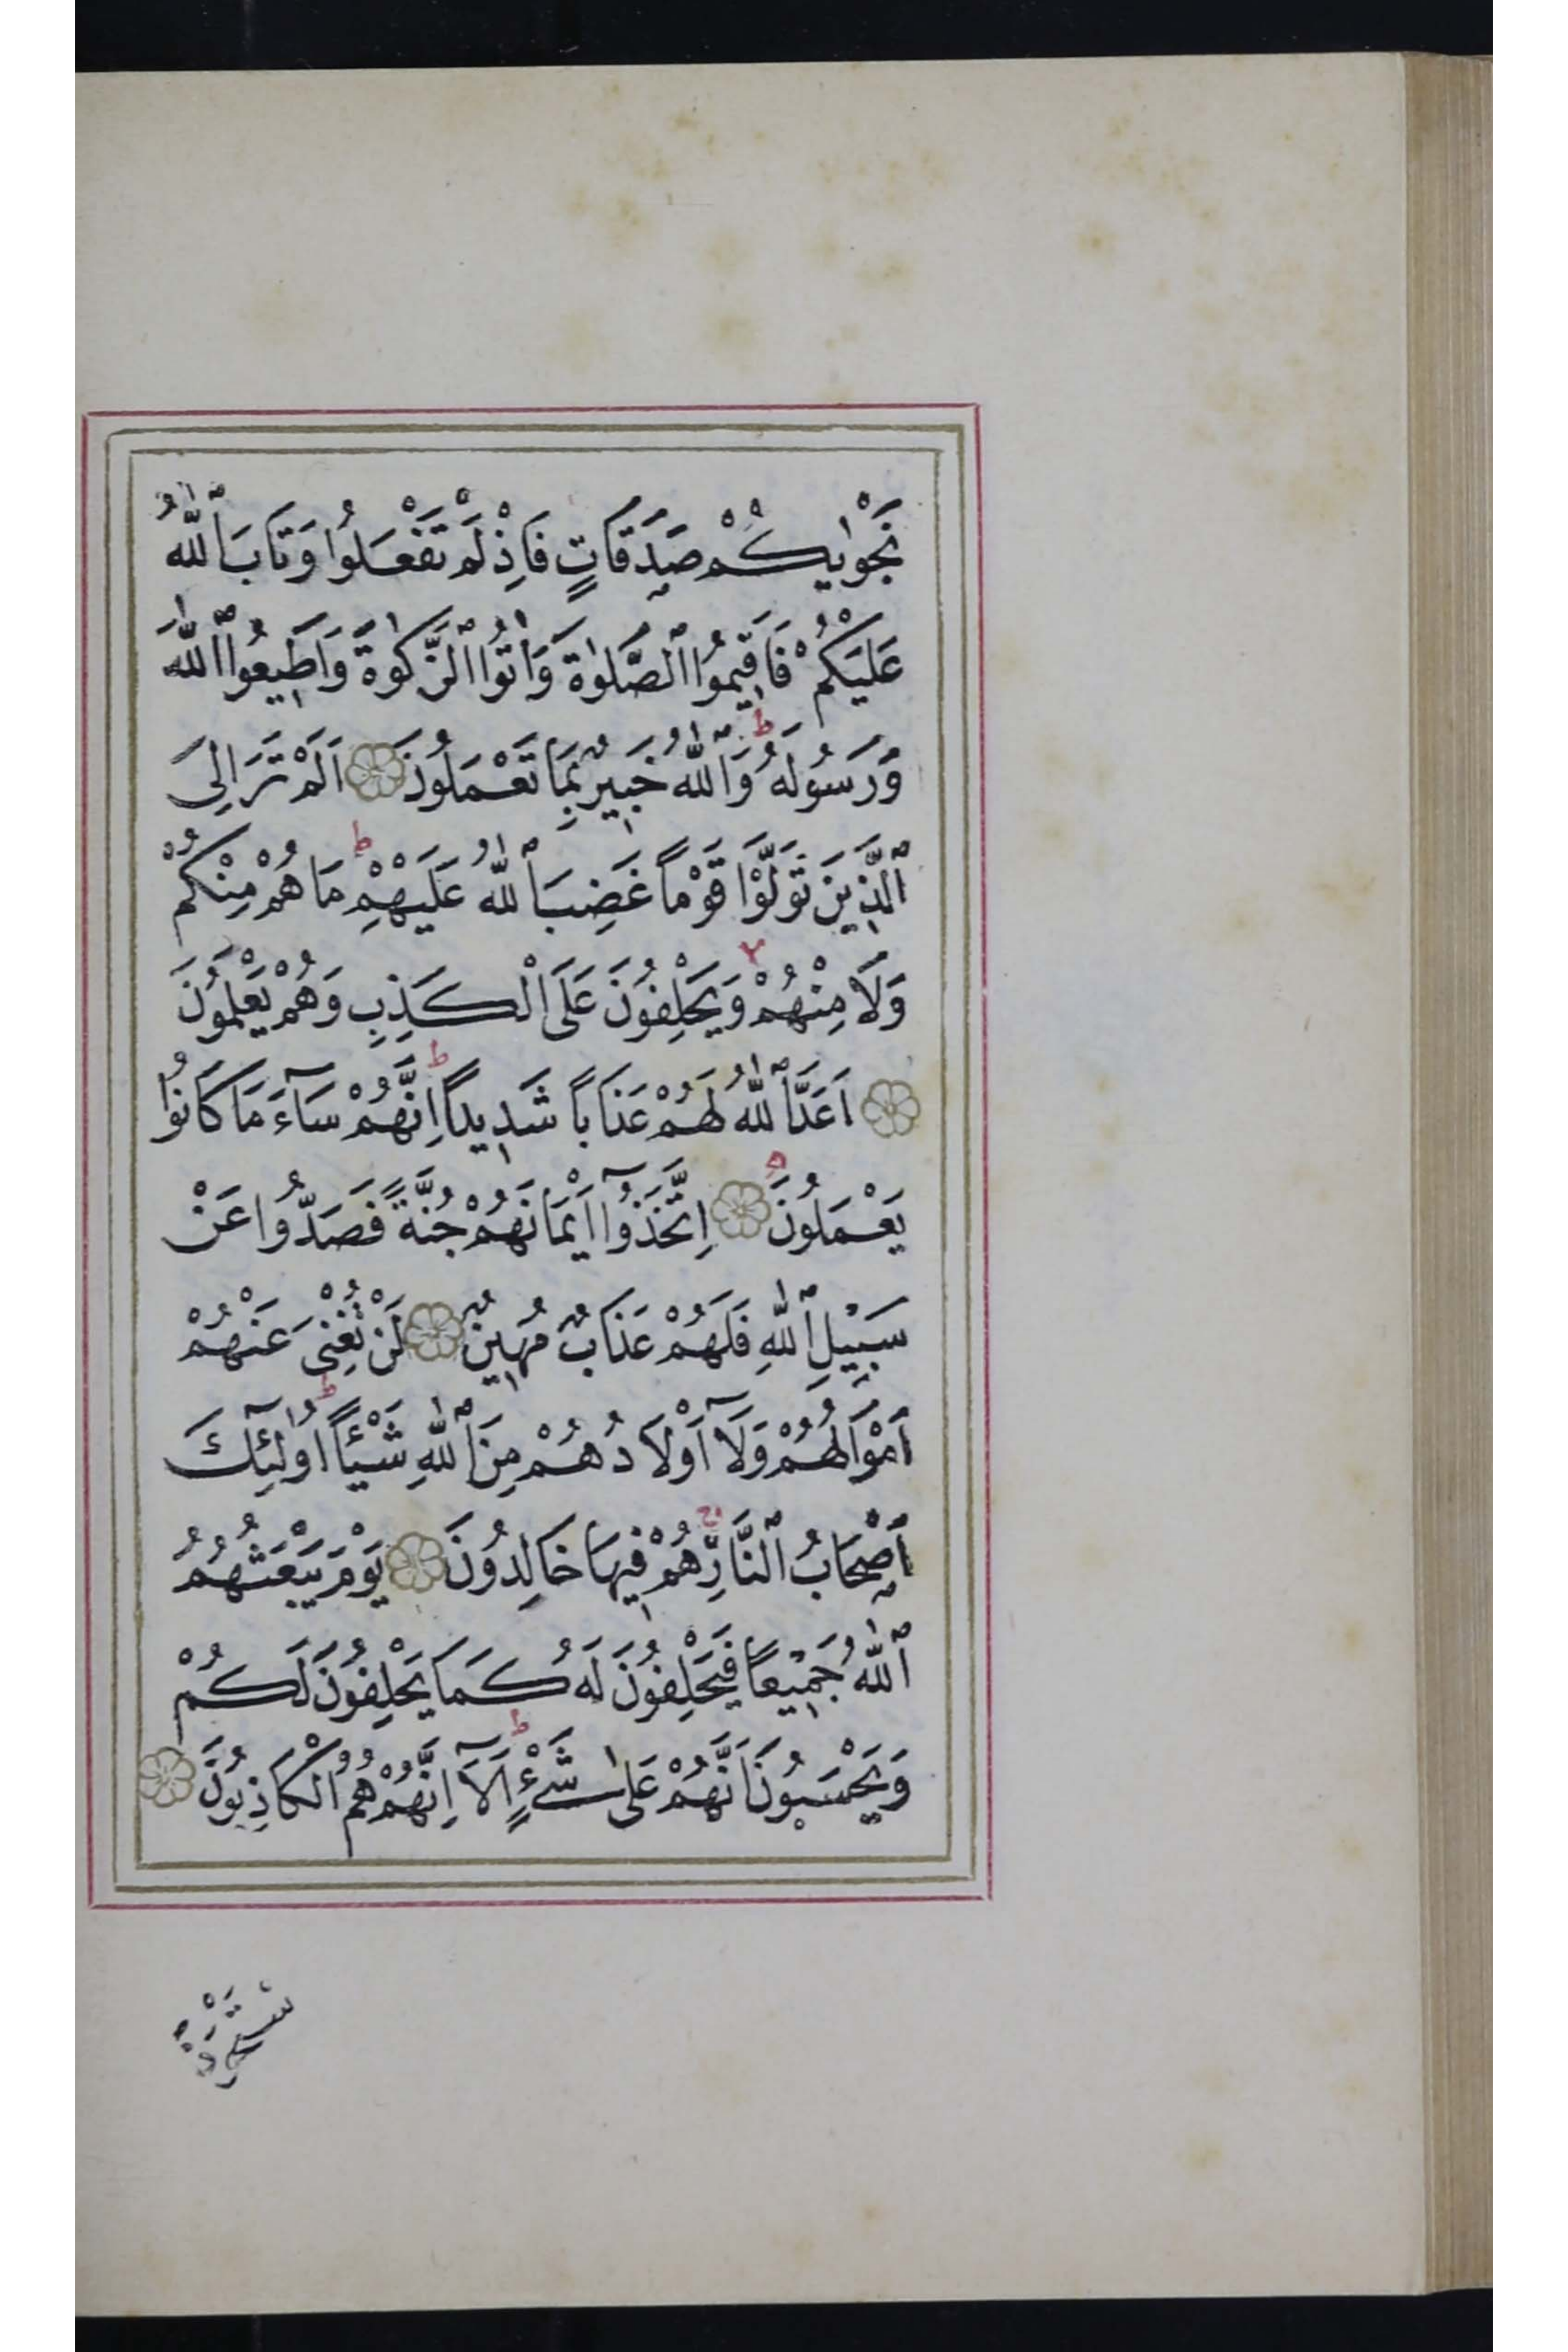 نَجْوٰيكُمْ صَدَقَاتٍ فَاِذْ لَمْ تَفْعَلُوا وَتَابَ ٱللّٰهُ
عَلَيْكُمْ فَاَقِيمُوا ٱلصَّلٰوةَ وَاٰتُوا ٱلزَّكٰوةَ وَاَطِيعُوا ٱللّٰهَ
وَرَسُولَهُ ط وَٱللّٰهُ خَبِيرٌ بِمَا تَعْمَلُونَ اَلَمْ تَرَ اِلَى
ٱلَّذِينَ تَوَلَّوْا قَوْماً غَضِبَ ٱللّٰهُ عَلَيْهِمْ ط مَا هُمْ مِنْكُمْ
وَلَا مِنْهُمْ لا وَيَحْلِفُونَ عَلَى الْكَذِبِ وَهُمْ يَعْلَمُونَ
اَعَدَّ ٱللّٰهُ لَهُمْ عَذَاباً شَدِيداً ط اِنَّهُمْ سَآءَ مَا كَانُوا
يَعْمَلُونَ ه اِتَّخَذُوٓا اَيْمَانَهُمْ جُنَّةً فَصَدُّوا عَنْ
سَبِيْلِ ٱللّٰهِ فَلَهُمْ عَذَابٌ مُهِينٌ لَنْ تُغْنِىَ عَنْهُمْ
اَمْوَالُهُمْ وَلَآ اَوْلَادُهُمْ مِنَ ٱللّٰهِ شَيْئاً ط اُولٰٓئِكَ
اَصْحَابُ ٱلنَّارِ ج هُمْ فِيهَا خَالِدُونَ يَوْمَ يَبْعَثُهُمُ
ٱللّٰهُ جَمِيْعاً فَيَحْلِفُونَ لَهُ كَمَا يَحْلِفُونَ لَكُمْ
وَيَحْسَبُونَ اَنَّهُمْ عَلٰى شَىْءٍ ط اَلَآ اِنَّهُمْ هُمُ الْكَاذِبُونَ